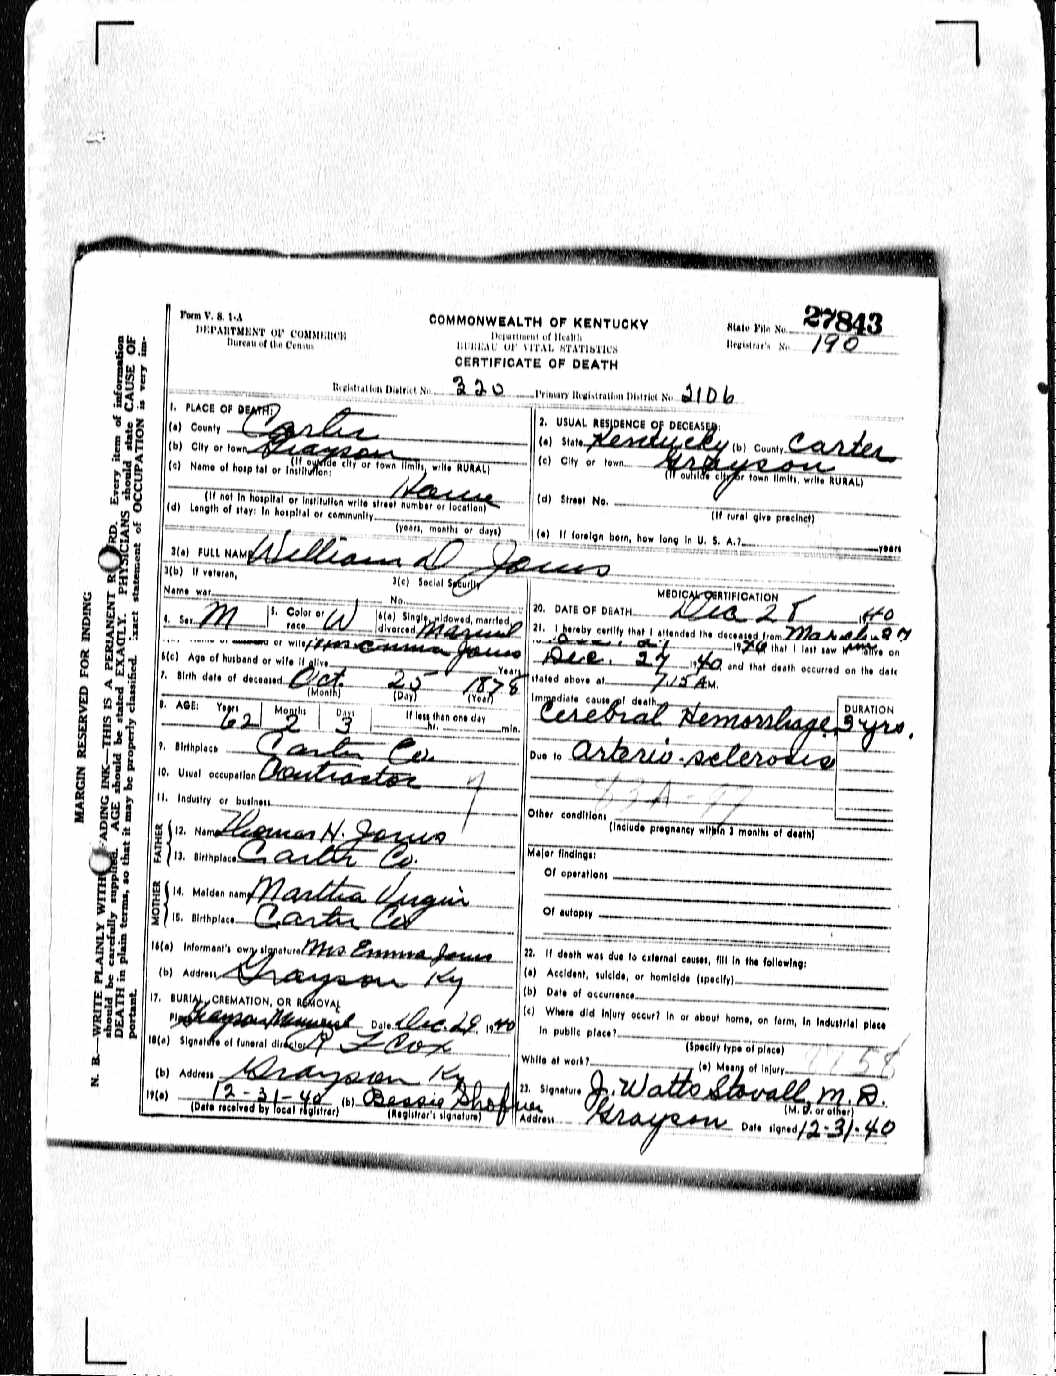 Form V. S. 1-A
DEPARTMENT OF COMMERCE
Bureau of the Census
COMMONWEALTH OF KENTUCKY
Department of Health
BUREAU OF VITAL STATISTICS
CERTIFICATE OF DEATH
State File No. 27843
Registrar's No. 190
Registration District No. 320 Primary Registration District No. 2106
1. PLACE OF DEATH:
(a) County Carter
(b) City or town Grayson
(If outside city or town limits, write RURAL)
(c) Name of hospital or institution:
Home
(If not in hospital or institution write street number or location)
(d) Length of stay: In hospital or community
(years, months or days)
2. USUAL RESIDENCE OF DECEASED:
(a) State Kentucky (b) County Carter
(c) City or town Grayson
(If outside city or town limits, write RURAL)
(d) Street No.
(If rural give precinct)
(e) If foreign born, how long in U. S. A.? years
3(a) FULL NAME William D Jones
3(b) If veteran,
Name war
3(c) Social Security
No.
4. Sex M 5. Color or race W 6(a) Single, widowed, married, divorced Married
or wife Mrs Emma Jones
6(c) Age of husband or wife if alive Years
7. Birth date of deceased Oct. 25 1878
(Month) (Day) (Year)
8. AGE: Years Months Days If less than one day
62 2 3 hr. min.
9. Birthplace Carter Co.
10. Usual occupation Contractor
11. Industry or business
FATHER
12. Name Thomas H. Jones
13. Birthplace Carter Co.
MOTHER
14. Maiden name Martha Virgin
15. Birthplace Carter Co
16(a) Informant's own signature Mrs Emma Jones
(b) Address Grayson Ky
17. BURIAL, CREMATION, OR REMOVAL
Place Grayson Memorial Date Dec. 29, 1940
18(a) Signature of funeral director R L Cox
(b) Address Grayson Ky
19(a) 12-31-40 (b) Bessie Shofner
(Date received by local registrar) (Registrar's signature)
MEDICAL CERTIFICATION
20. DATE OF DEATH Dec 28 1940
21. I hereby certify that I attended the deceased from March 27
Dec. 27 1940 that I last saw him alive on
Dec. 27 1940 and that death occurred on the date
stated above at 7:15 A M.
Immediate cause of death
DURATION
Cerebral Hemorrhage 3 yrs.
Due to arterio-sclerosis
83A-97
Other conditions
(Include pregnancy within 3 months of death)
Major findings:
Of operations
Of autopsy
22. If death was due to external causes, fill in the following:
(a) Accident, suicide, or homicide (specify)
(b) Date of occurrence
(c) Where did injury occur? In or about home, on farm, in industrial place
In public place?
(Specify type of place)
While at work? (e) Means of injury
23. Signature J. Watts Stovall, M. D.
(M. D. or other)
Address Grayson Date signed 12-31-40
MARGIN RESERVED FOR INDING
N. B.—WRITE PLAINLY WITH FADING INK—THIS IS A PERMANENT RECORD. Every item of information
should be carefully supplied. AGE should be stated EXACTLY. PHYSICIANS should state CAUSE OF
DEATH in plain terms, so that it may be properly classified. Exact statement of OCCUPATION is very im-
portant.